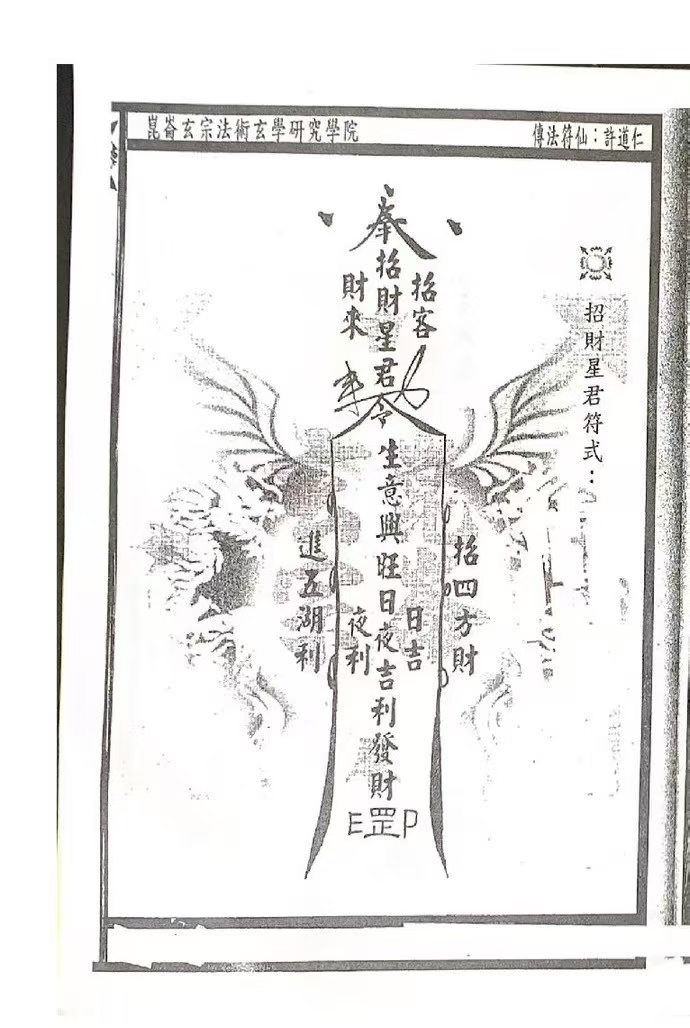 崑崙玄宗法術玄學研究學院
傳法符仙：許道仁
招財星君符式：
奉
招財星君
令
招客
財來
生意興旺日夜吉利發財
日吉
夜利
招四方財
進五湖利
罡